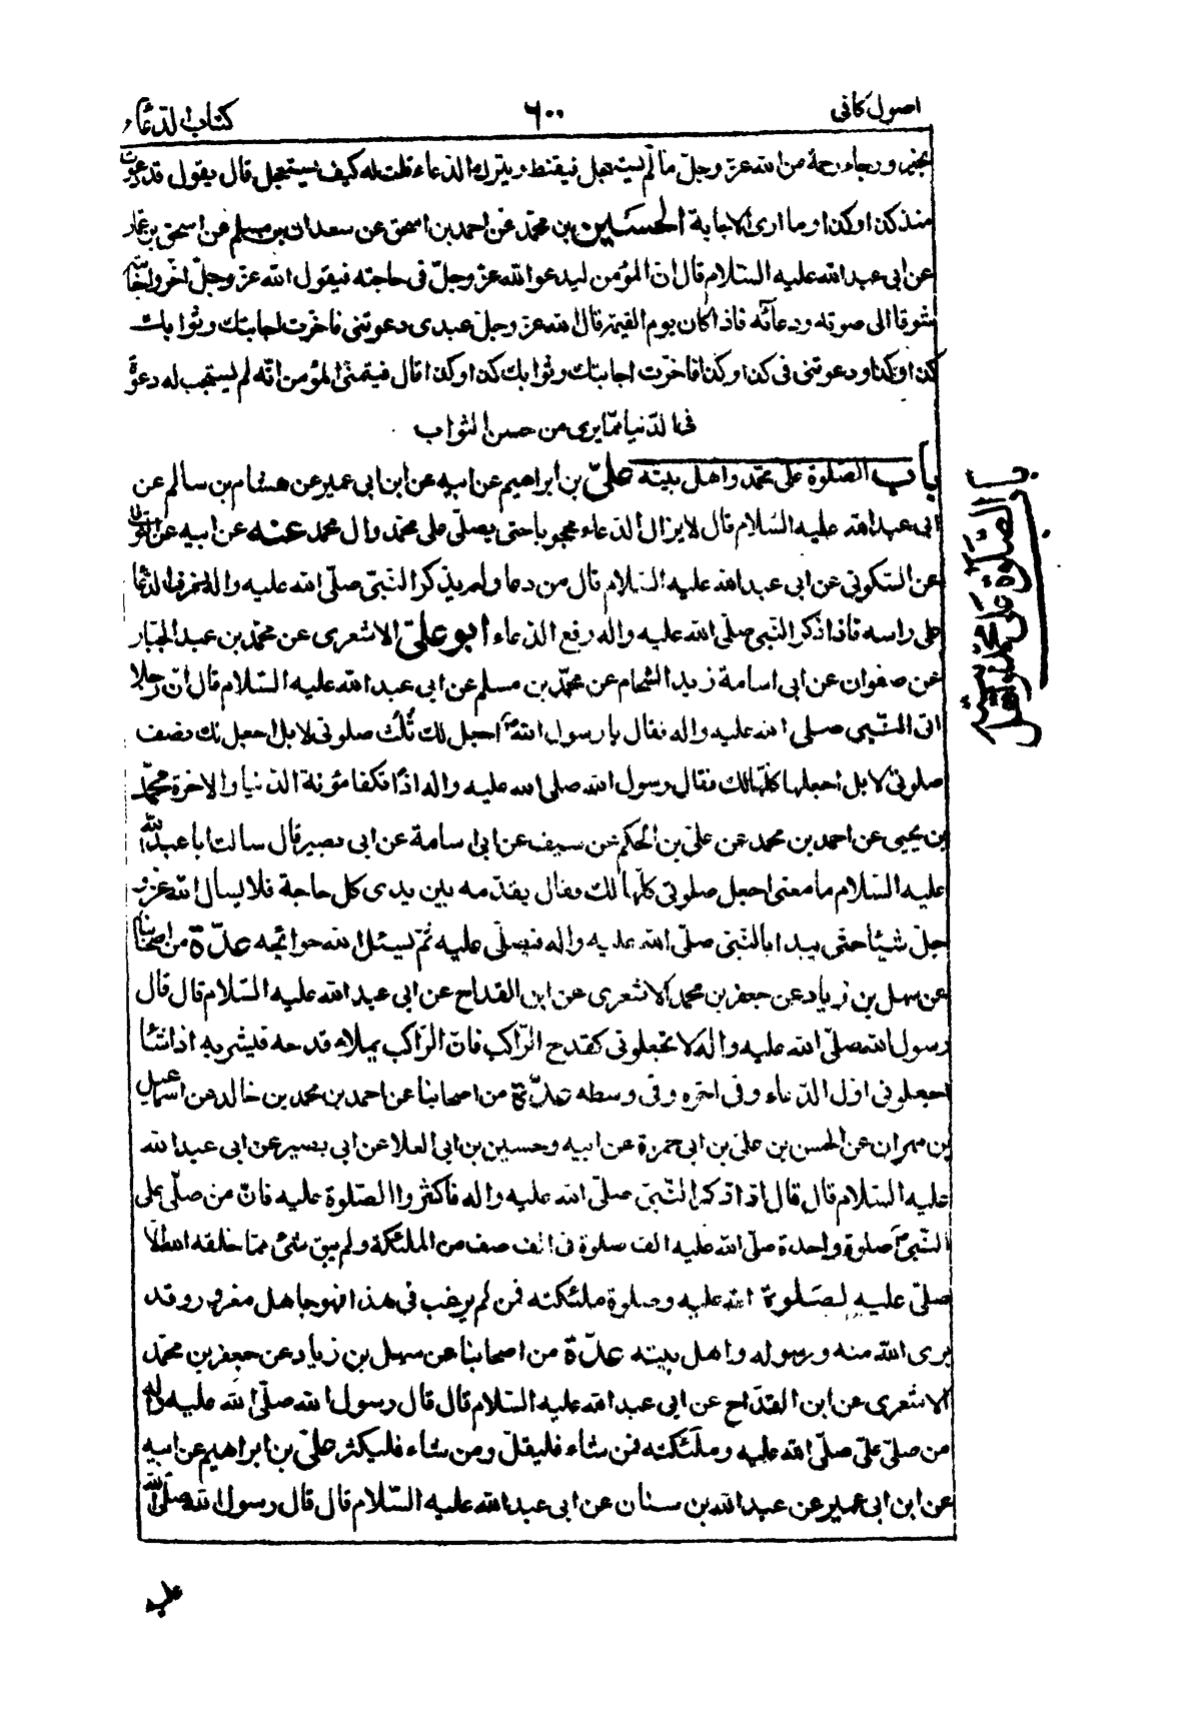 اصول كافى
٦٠٠
كتاب الدعاء
بخير ورجاء رحمة من الله عزّ وجلّ ما لم يستعجل فيقنط ويترك الدعاء قلت له كيف يستعجل قال يقول قد دعوت
منذ كذا وكذا وما ارى الاجابة الحسين بن محمّد عن احمد بن اسحق عن سعدان بن مسلم عن اسحق بن عمار
عن ابى عبد الله عليه السّلام قال ان المؤمن ليدعو الله عزّ وجلّ فى حاجته فيقول الله عزّ وجلّ اخّروا اجابته
شوقا الى صوته ودعائه فاذا كان يوم القيمة قال الله عزّ وجلّ عبدى دعوتنى فاخّرت اجابتك وثوابك
كذا وكذا ودعوتنى فى كذا وكذا فاخّرت اجابتك وثوابك كذا وكذا قال فيتمنّى المؤمن انّه لم يستجب له دعوة
فى الدّنيا ممّا يرى من حسن الثواب
باب الصلوة على محمّد واهل بيته علىّ بن ابراهيم عن ابيه عن ابن ابى عمير عن هشام بن سالم عن
ابى عبد الله عليه السّلام قال لا يزال الدعاء محجوبا حتى يصلّى على محمّد وال محمد عنه عن ابيه عن النوفلى
عن السّكونى عن ابى عبد الله عليه السّلام قال من دعا ولم يذكر النّبىّ صلّى الله عليه واله رفرف الدّعا
على راسه فاذا ذكر النّبى صلّى الله عليه واله رفع الدعاء ابو علىّ الاشعرى عن محمّد بن عبد الجبّار
عن صفوان عن ابى اسامة زيد الشحام عن محمّد بن مسلم عن ابى عبد الله عليه السّلام قال انّ رجلا
اتى النّبى صلى الله عليه واله فقال يا رسول الله اجعل لك ثلث صلوتى لا بل اجعل لك نصف
صلوتى لا بل اجعلها كلّها لك فقال رسول الله صلى الله عليه واله اذًا تكفا مؤنة الدّنيا والاخرة محمّد
بن يحيى عن احمد بن محمد عن علىّ بن الحكم عن سيف عن ابى اسامة عن ابى بصير قال سالت ابا عبد الله
عليه السّلام ما معنى اجعل صلوتى كلّها لك فقال يقدّمه بين يدى كل حاجة فلا يسال الله عزّ و
جلّ شيئا حتّى يبدا بالنّبىّ صلّى الله عليه واله فيصلّى عليه ثمّ يسئل الله حوائجه عدّة من اصحابنا
عن سهل بن زياد عن جعفر بن محمد الاشعرى عن ابن القداح عن ابى عبد الله عليه السّلام قال قال
رسول الله صلّى الله عليه واله لا تجعلونى كقدح الرّاكب فانّ الرّاكب يملاء قدحه فيشربه اذا شا
اجعلونى اوّل الدّعاء وفى اخره وفى وسطه عدّة من اصحابنا عن احمد بن محمد بن خالد عن اسماعيل
بن مهران عن الحسن بن علىّ بن ابى حمزة عن ابيه وحسين بن ابى العلا عن ابى بصير عن ابى عبد الله
عليه السّلام قال قال اذا ذكر النّبىّ صلّى الله عليه واله فاكثروا الصّلوة عليه فانّ من صلّى على
النّبىّ صلوة واحدة صلّى الله عليه الف صلوة فى الف صف من الملئكة ولم يبق شئ ممّا خلقه الله الّا
صلّى عليه لصلوة الله عليه وصلوة ملئكته فمن لم يرغب فى هذا فهو جاهل مغرور وقد
برى الله منه ورسوله واهل بيته عدّة من اصحابنا عن سهل بن زياد عن جعفر بن محمّد
الاشعرى عن ابن القدّاح عن ابى عبد الله عليه السّلام قال قال رسول الله صلّى الله عليه واله
من صلّى علىّ صلّى الله عليه وملئكته فمن شاء فليقلّ ومن شاء فليكثر علىّ بن ابراهيم عن ابيه
عن ابن ابى عمير عن عبد الله بن سنان عن ابى عبد الله عليه السّلام قال قال رسول الله صلّى الله
عليه
باب الصّلوة على محمّد واهل بيته